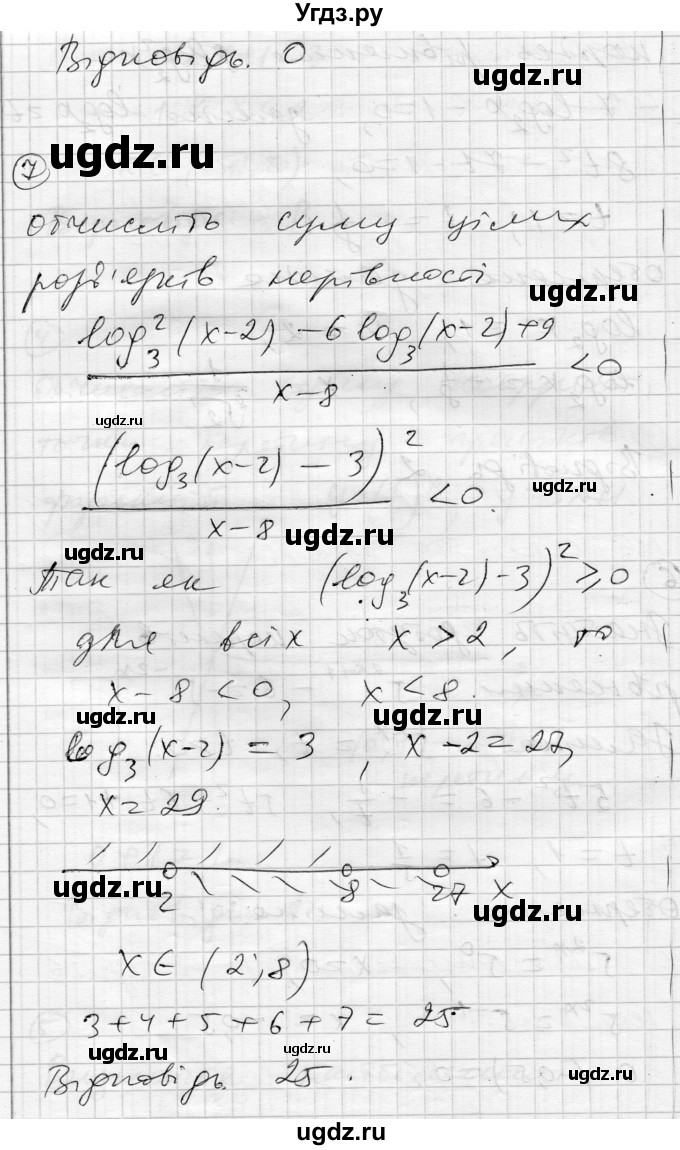 Угдз.ру
Відповідь. 0
ugdz.ru
ugdz.ru
7
Обчисліть суму цілих
розв'язків нерівності
log₃²(x-2) - 6 log₃(x-2) + 9
x - 8
< 0
ugdz.ru
(log₃(x-2) - 3)²
x - 8
< 0.
ugdz.ru
ugdz.ru
ugdz.ru
Так як (log₃(x-2)-3)² ≥ 0
для всіх x > 2, то
x - 8 < 0, x < 8.
ugdz.ru
ugdz.ru
log₃(x-2) = 3, x - 2 = 27,
x = 29.
2 8 27 x
ugdz.ru
ugdz.ru
x ∈ (2; 8)
3 + 4 + 5 + 6 + 7 = 25
ugdz.ru
ugdz.ru
Відповідь 25.
ugdz.ru
ugdz.ru